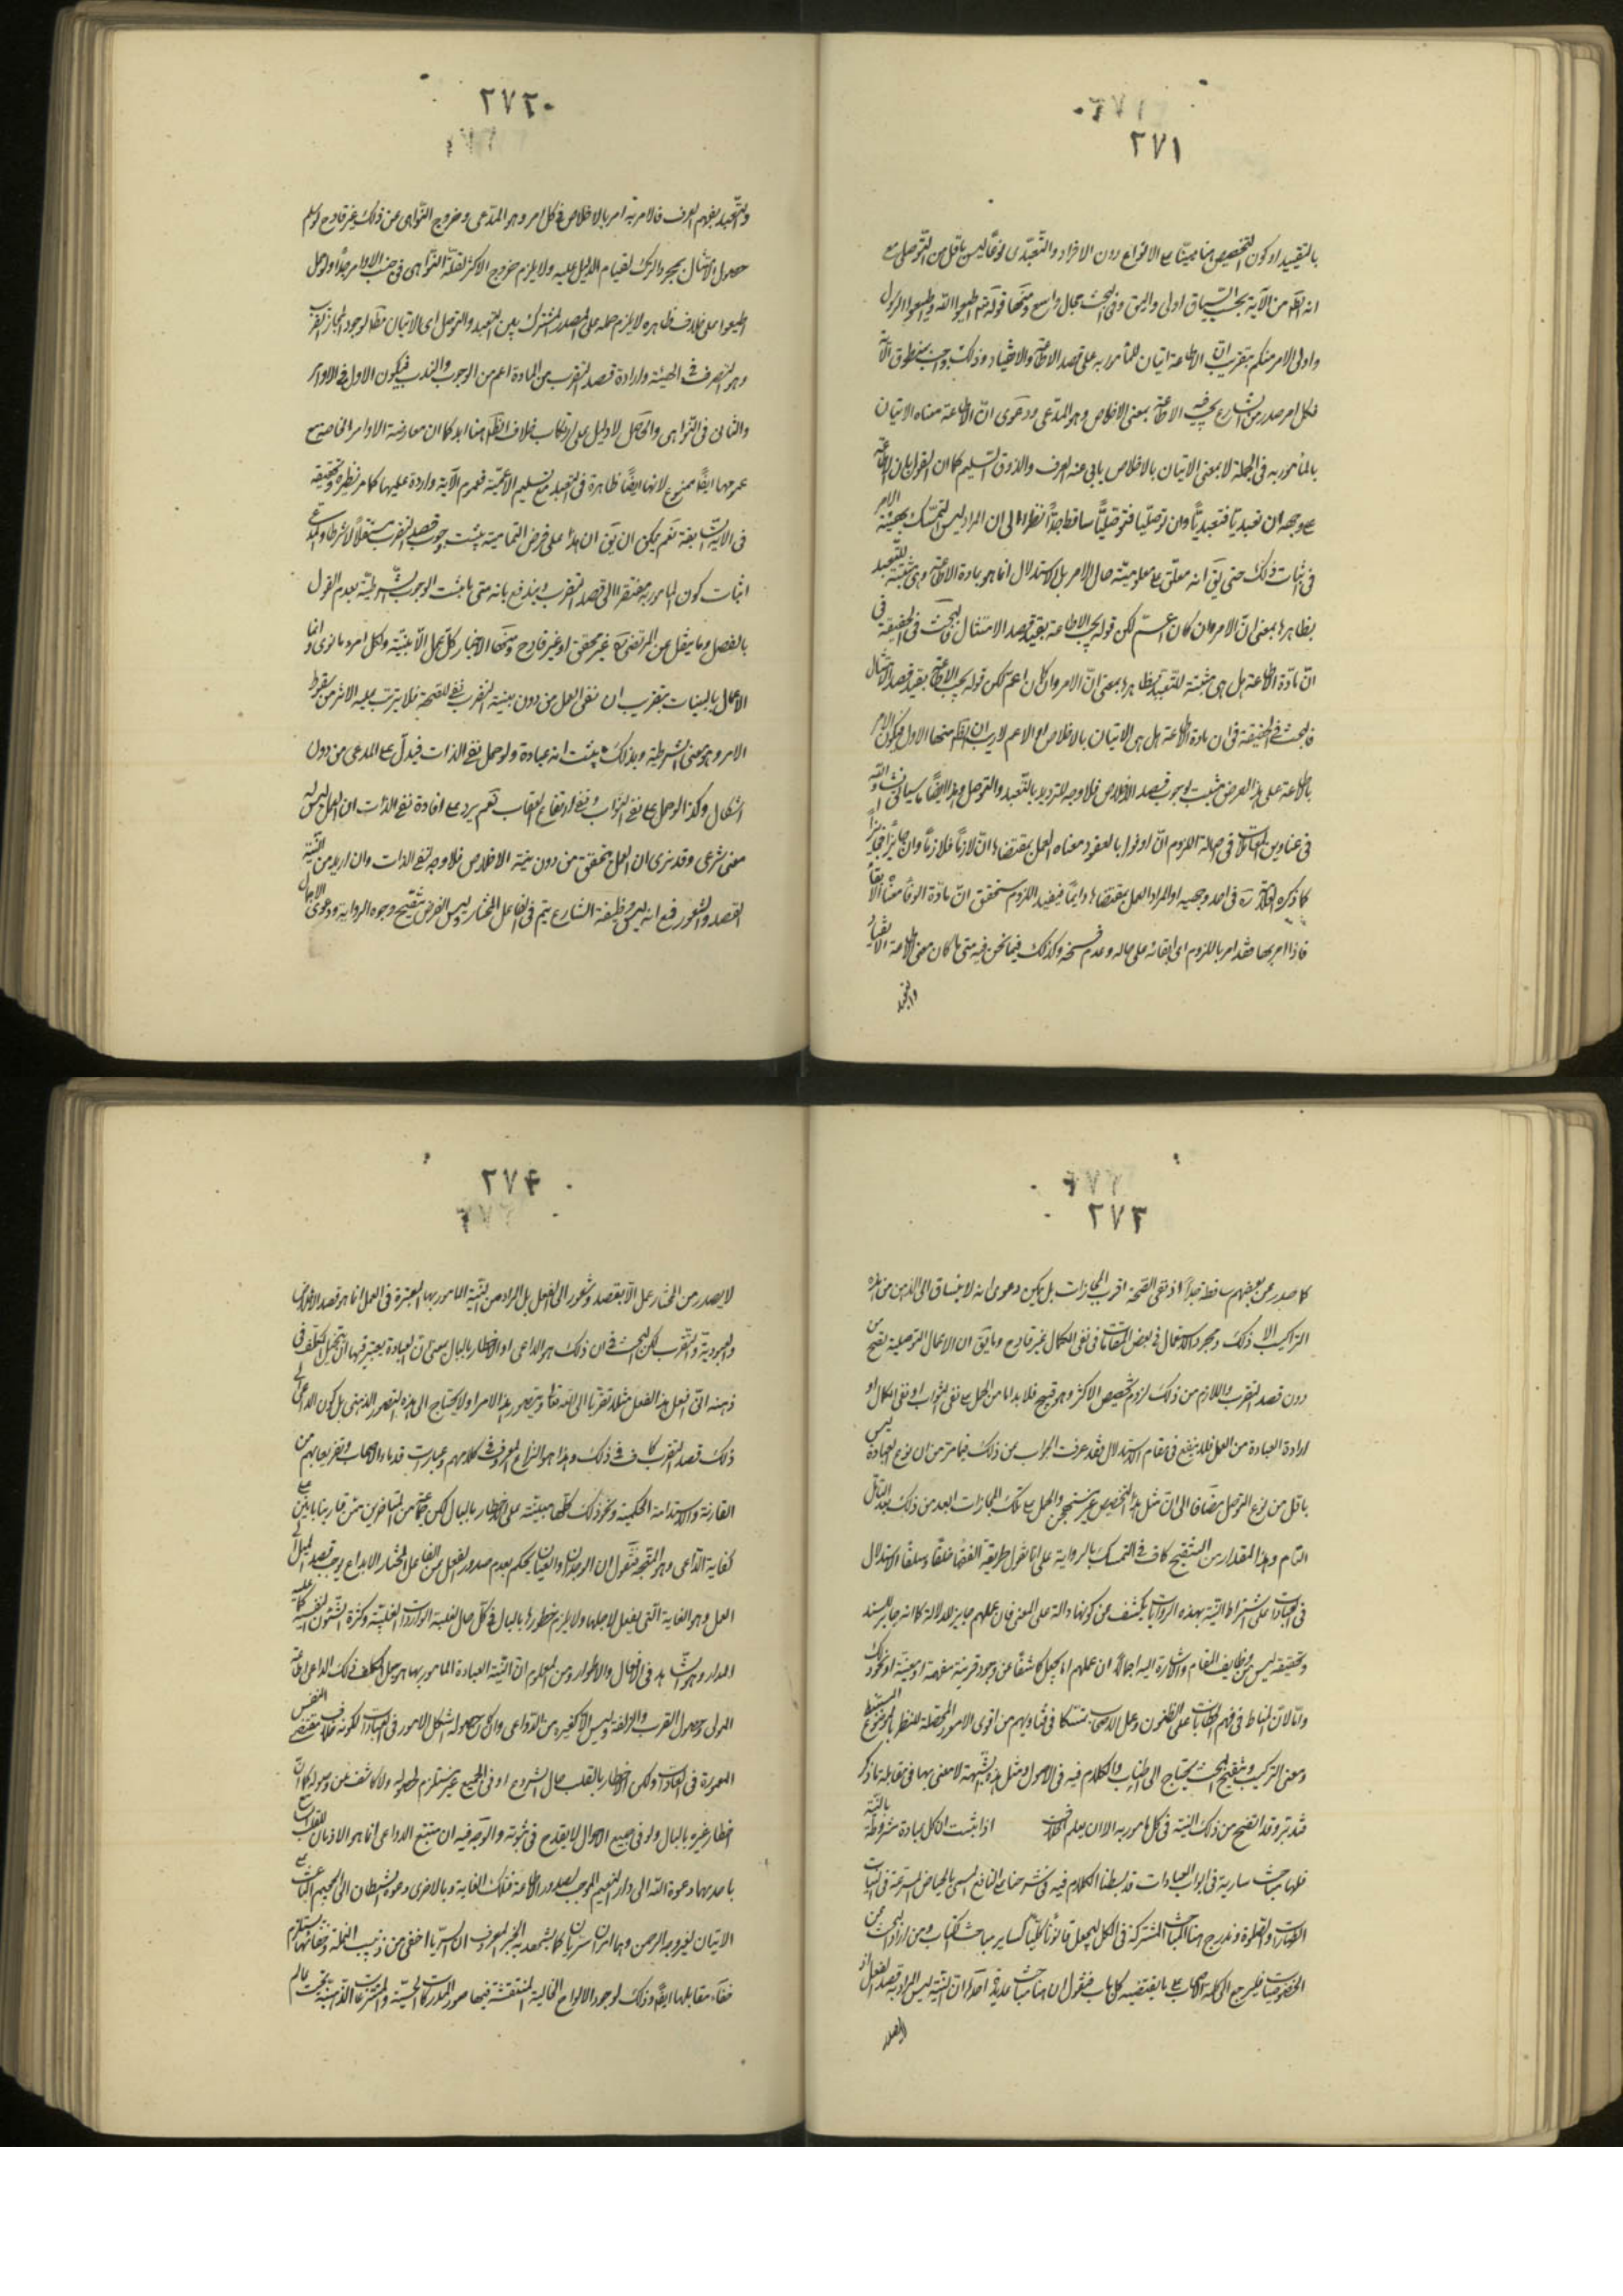 ٢٧١
بالتقييد او كون التخصيص هنا مبنيّا على الانواع دون الافراد والتّعبّدى نوعًا ليس باقل من التّوصلى مع
انه اظهر من الآية بحسب السّياق اولى واليق وفى البحث مجال واسع ومنها قوله تعه اطيعوا الله واطيعوا الرسول
واولى الامر منكم بتقريب انّ الاطاعة اتيان للمأمور به على قصد الاطاعة والانقياد وذلك واجب بمنطوق الآية
فكل امر صدر من الشارع يجب فيه الاطاعة بمعنى الاخلاص وهو المدّعى ودعوى انّ الاطاعة معناه الاتيان
بالمأمور به فى الجملة لا بمعنى الاتيان بالاخلاص يابى عنه العرف والذوق السّليم كما ان القول بان الاطاعة
على وجهه ان تعبديّا فتعبديّا وان توصليّا فتوصليّا ساقط جدّا نظرا الى ان المراد ليس التمسّك بهيئة الامر
فى اثبات ذلك حتى يق انه معلّق على معلومية حال الامر بل الاستدلال انما هو بمادة الاطاعة وهى مثبتة للتعبد
بظاهرها بمعنى انّ الامر وان كان اعم لكن قوله يجب الاطاعة يقيد قصد الامتثال فالبحث فى الحقيقة فى
انّ مادّة الاطاعة هل هى مثبتة للتعبد بظاهرها بمعنى انّ الامر وان كان اعم لكن قوله يجب الاطاعة يقيد قصد الامتثال
فالبحث فى الحقيقة فى ان مادة الاطاعة هل هى الاتيان بالاخلاص او الاعم لا ريب ان الظ منها الاول فيكون الامر
بالاطاعة على هذا الفرض مثبت لوجوب قصد الاخلاص فلا وجه للترديد بالتّعبد والتوصل وهذا ايضًا ما سياتى انشاء الله
فى عناوين المعاملات فى اصالة اللزوم انّ اوفوا بالعقود معناه العمل بمقتضاها ان لازمًا فلازمًا وان جايزًا فجايزًا
كما ذكره العلّامة ره فى احد وجهيه او المراد العمل بمقتضاها دايمًا فيفيد اللزوم ستحقق انّ مادّة الوفا معناها الابقاء
فاذا امر بها فقد امر باللزوم اى ابقائه على حاله وعدم فسخه وكذلك فيما نحن فيه متى ما كان معنى الاطاعة الانقياد
والتعبد
٢٧٢
والتّعبد بفهم العرف فالامر به امر بالاخلاص فى كل امر وهو المدّعى وخروج النّواهى عن ذلك غير قادح لو سلم
حصول الامتثال بمجرد الترك لقيام الدليل عليه ولا يلزم خروج الاكثر لقلّة النّواهى فى جنب الاوامر جدًّا ولو حمل
اطيعوا على خلاف ظاهره لا يلزم حمله على المصدر المشترك بين التعبد والتوصل اى الاتيان مطلقا لوجود المجاز القريب
وهو التصرف فى الهيئة وارادة قصد التقرب من المادة اعم من الوجوب والندب فيكون الاول فى الاوامر
والثانى فى النّواهى والحاصل لا دليل على ارتكاب خلاف الظ هنا ابدا كما ان معارضة الاوامر الخاصة مع
عمومها ايضًا ممنوع لانها ايضًا ظاهرة فى التعبد مع تسليم الاعمّية فعموم الآية واردة عليها كما مر نظيره وتحقيقه
فى الآية السّابقة نعم يمكن ان يق ان هذا على فرض التمامية يثبت وجوب قصد التقرب مستقلًّا لا شرطا والمدعى
اثبات كون المامور به مفتقرا الى قصد التقرب ويندفع بانه متى ما ثبت الوجوب ثبت الشرطيّة بعدم القول
بالفصل وما ينقل عن المرتضى ره غير محقق او غير قادح ومنها الاخبار كلا عمل الّا بنيّة ولكل امرء ما نوى وانما
الاعمال بالنيات بتقريب ان نفى العمل من دون نيّة التقرب نفى للصّحة فلا يترتب عليه الاثر من سقوط
الامر وهو معنى الشرطية وبذلك يثبت انه عبادة ولو حمل نفى الذات فيدلّ على المدعى من دون
اشكال وكذا لو حمل على نفى الثواب ونفى ارتفاع العقاب نعم يرد على افادة نفى الذات ان العمل ليس له
معنى شرعى وقد نرى ان العمل يتحقق من دون نية الاخلاص فلا وجه لنفى الذات وان اريد من النّية
القصد والشعور فمع انه ليس وظيفة الشارع يتم فى الفاعل المختار وليس الغرض تنقيح وجوه الرواية ودعوى الاجمال
٢٧٣
كما صدر عن بعضهم ساقطة جدّا اذ نفى الصّحة اقرب المجازات بل يمكن دعوى انه لا ينساق الى الذهن من هذه
التراكيب الا ذلك ومجرد الاستعمال فى بعض المقامات فى نفى الكمال غير قادح وما يق ان الاعمال التوصلية تصّح من
دون قصد التقرب واللازم من ذلك لزوم تخصيص الاكثر وهو قبيح فلا بد اما من الحمل على نفى الثواب او نفى الكمال او
ارادة العبادة من العمل فلا ينفع فى مقام الاستدلال فقد عرفت الجواب عن ذلك فيما مرّ من ان نوع العبادة ليس
باقل من نوع التوصل مضافا الى ان مثل هذا التخصيص غير مستهجن والحمل على تلك المجازات ابعد من ذلك بعد التامّل
التام وهذا المقدار من التنقيح كاف فى التمسك بالرواية على انا نقول طريقة الفقهاء خلفًا وسلفًا الاستدلال
فى العبادات على اشتراط النّية بهذه الروايات يكشف عن كونها دالة على المعنى فان عملهم جابر للدلالة كما انه جابر للسند
وتحقيقه ليس من وظايف المقام والاشارة اليه اجمالًا ان عملهم اما يجعل كاشفًا عن وجود قرينة مفهمة او معينة او نحو ذلك
واما لان المناط فى فهم الخطابات على الظنون وعمل الاصحاب متمسّكا فى فتاويهم من اقوى الامور المحصلة للظن بالموضوع المستنبط
ومعنى التركيب وتنقيح البحث يحتاج الى اطناب والكلام فيه فى الاصول ومثل هذه الشبهة لا معنى بها فى مقابلة ما ذكر
فتدبّر وقد اتضح من ذلك النّية فى كل مامور به الا ان يعلم الخلاف اذا ثبت ان كل عبادة مشروطة بالنيّة
فلها مباحث سارية فى ابواب العبادات قد بسطنا الكلام فيه فى شرحنا على النافع المسمى بالحياض المترعة فى النيات
الطهارات والصّلوة وندرج هنا المباحث المشتركة فى الكل ليجعل قانونًا كليًّا كساير مباحث الكتاب ومن اراد البحث عن
الخصوصيات فليرجع الى كلمة الاصحاب على ما يقتضيه كل باب فنقول ان هنا مباحث عديدة احدها ان النيّة ليس المراد به قصد الفعل اذ
لا يصدر
٢٧۴
لا يصدر من المختار عمل الّا بقصد وشعور الى الفعل بل المراد من النّية المامور بها المعتبرة فى العمل انما هو قصد الاخلاص
والعبودية والتقرب لكن البحث فى ان ذلك هو الداعى او الاخطار بالبال بمعنى انّ العبادة يعتبر فيها ان يتخيل المكلف فى
ذهنه انى افعل هذا الفعل مثلا تقربًا الى الله تعالى ويتصور هذا الامر او لا يحتاج الى هذه التصور الذهنى بل كون الداعى الى
ذلك قصد التقرب كاف فى ذلك وهذا هو النزاع المعروف فى كلامهم وعبارت قدماء الاصحاب وتفريعاتهم من
المقارنة والاستدامة الحكمية ونحو ذلك كلها مبنيّة على الاخطار بالبال لكن جماعة من المتاخرين ممّن قارينا بانين على
كفاية الدّاعى وهو المتجه فنقول ان الوجدان والعيان يحكم بعدم صدور الفعل من الفاعل المختار الا بداع يوجب قصد الميل الى
العمل وهو الغاية التى يفعل لاجلها ولا يلزم خطورها بالبال فى كل حال لغلبة الواردات القلبيّة وكثرة الشئون النفسيّة كما عليه
المدار وهو المشاهد فى الافعال والاطوار ومن المعلوم ان النّية العبادة المامور بها هو جعل المكلف ذلك الداعى اطاعة
المولى وحصول القرب والزلفة وليس الا كغيره من الدّواعى وان كان حصوله اشكل الامور فى العبادات لكونه خلاف مقتضى النفس
المعمورة فى العادات ولكن الاخطار بالقلب حال الشروع او فى الجميع غير مستلزم لحصوله ولا كاشف عن وصوله كما ان
اخطار غيره بالبال ولو فى جميع الاحوال لا يقدح فى ثبوته والوجه فيه ان مستتبع الدواعى انما هو الاذعان للقلب
باحديهما دعوة الله الى دار النعيم الموجب لصدور الاطاعة تلك الغاية وبالاخرى دعوة الشيطان الى الجحيم الباعث على
الاتيان لغير وجه الرحمن وهما امران سرّيان كما يشهد به الخبر المعروف ان الرّيا اخفى من دبيب النملة وخفائها يستلزم
خفاء مقابلها ايضًا وذلك لوجود الالواح الخالية المنتقشة فيها صور المدركات الحسيّة والمخترعات الذّهنيّة تحت عالم